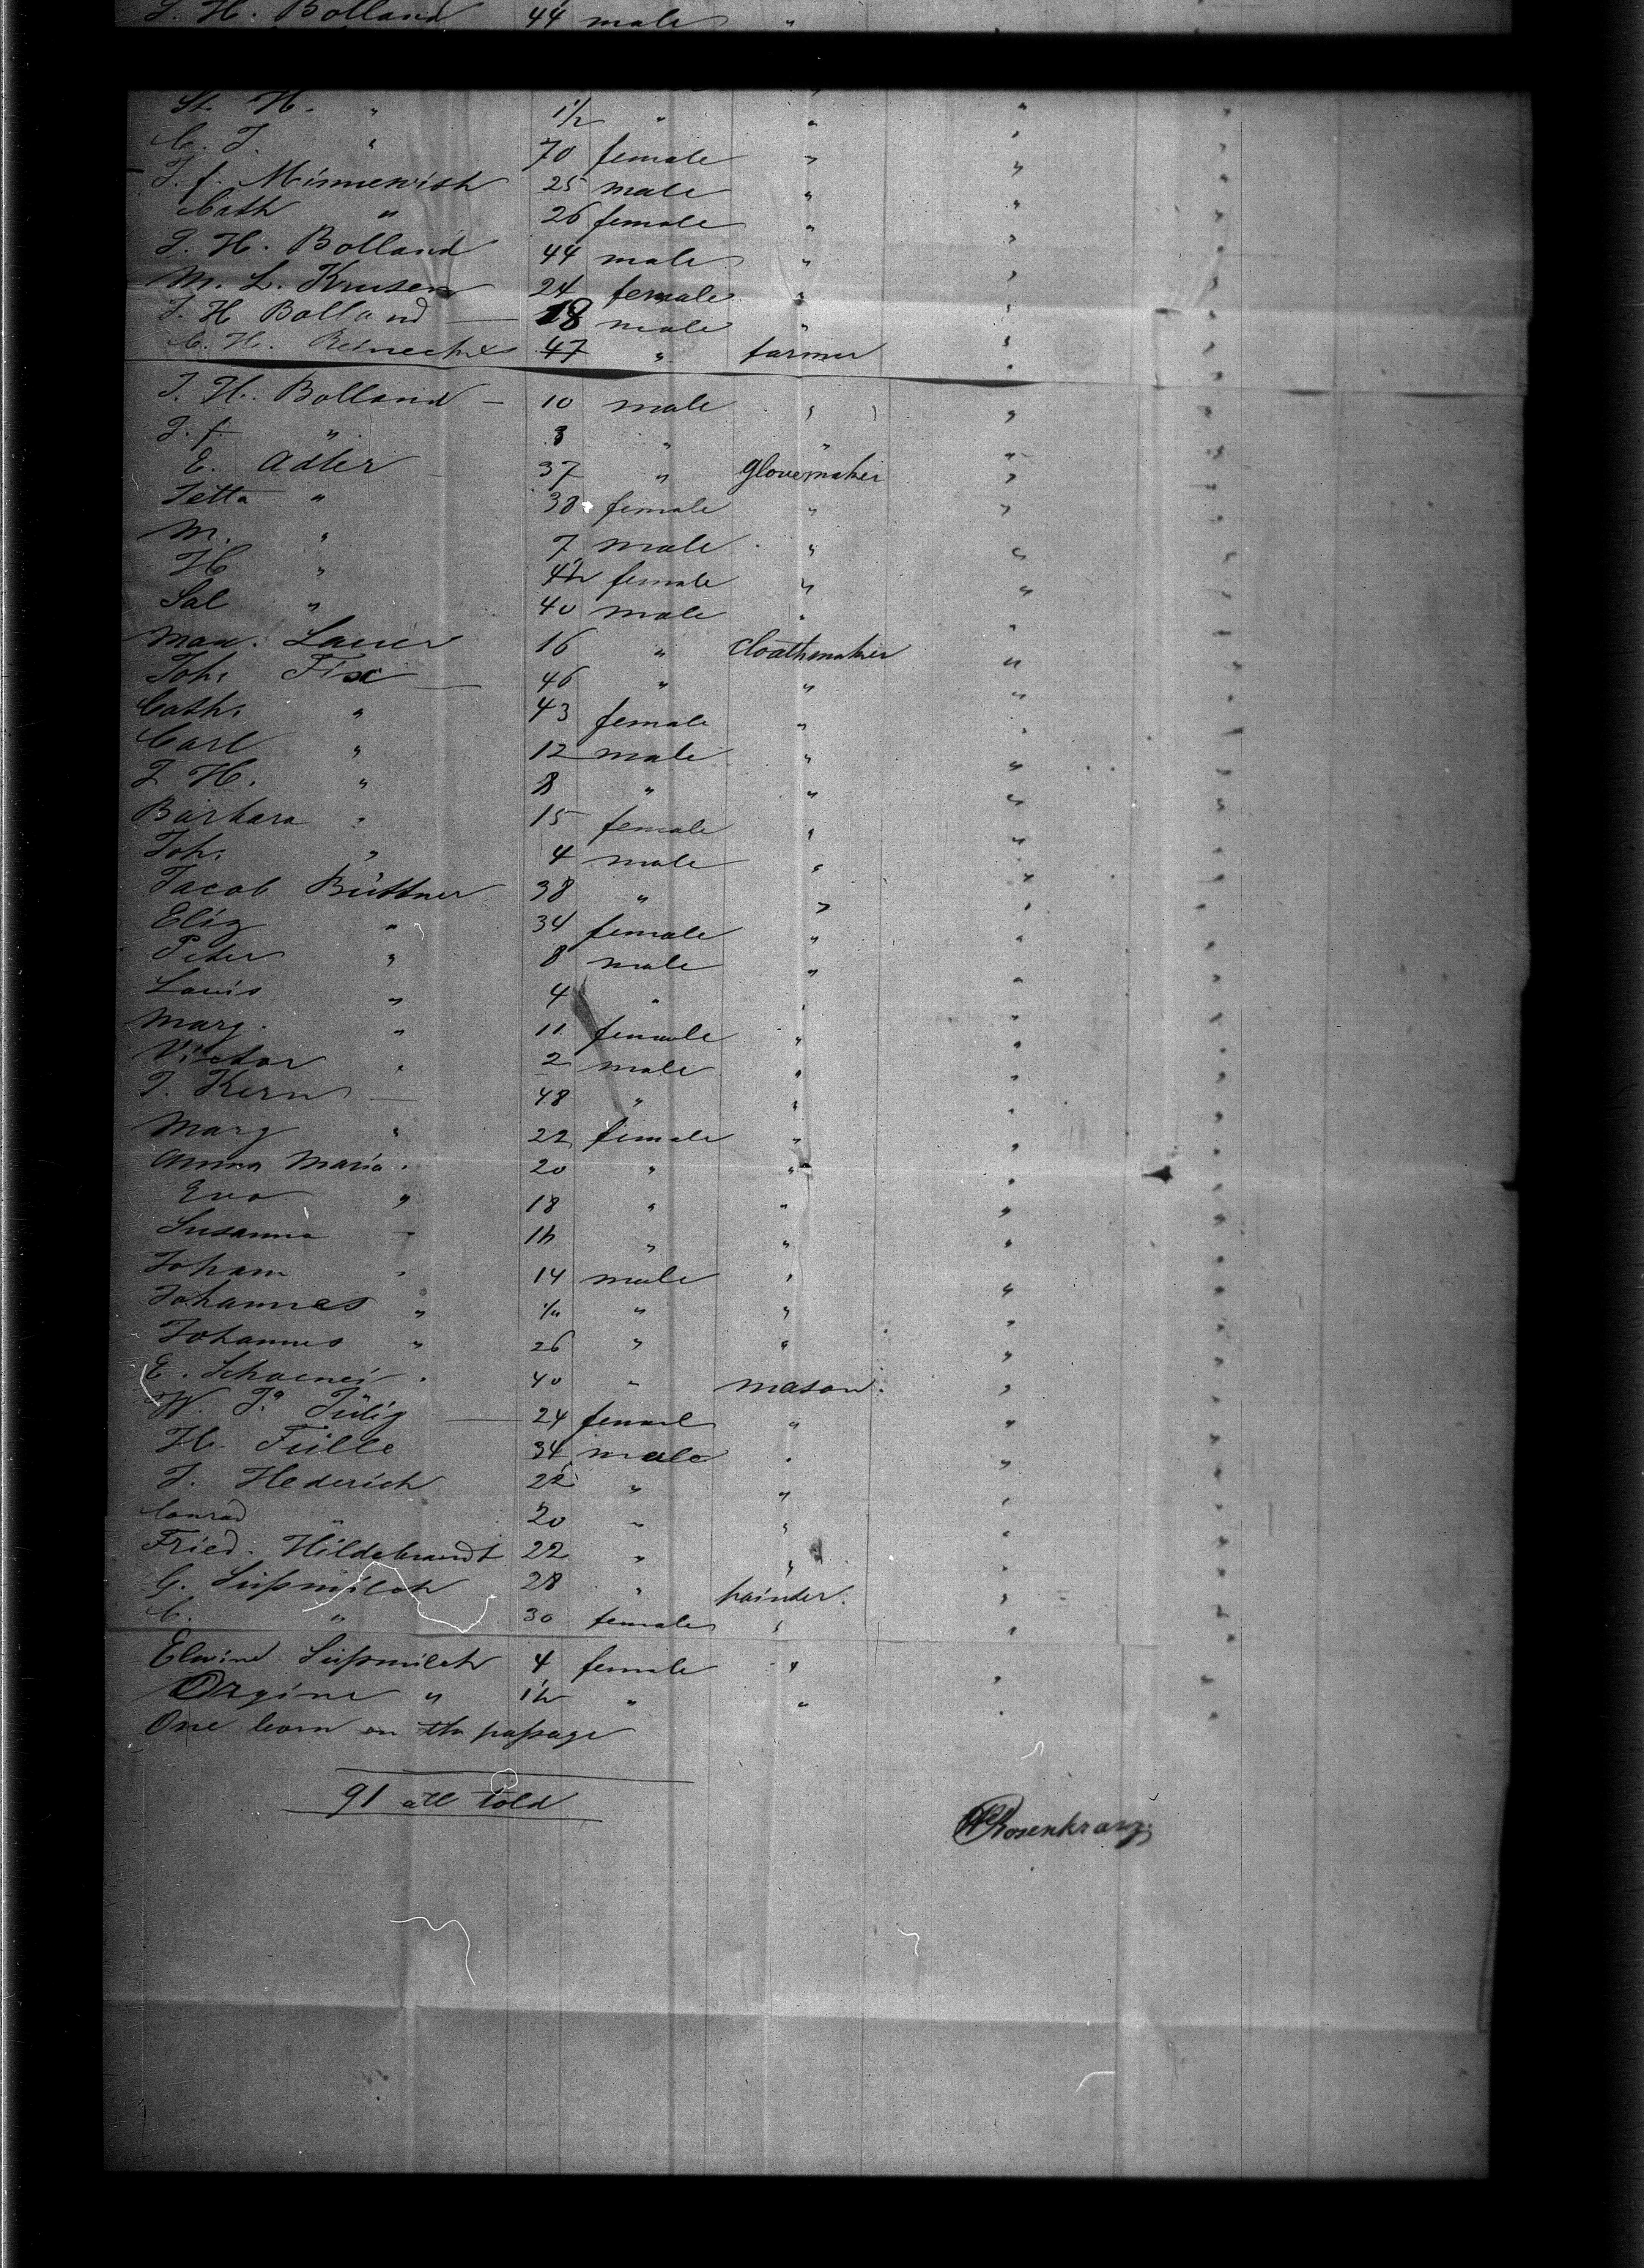 J. H. Bolland 44 male "
St. H. " 1 1/2 " " " "
C. J. " 70 female " " "
J. f. Minnewish 25 male " " "
Cath " 26 female " " "
J. H. Bolland 44 male " " "
M. L. Krusen 24 female " " "
J. H Bolland — 18 male " " "
C. H. Reinech 47 " farmer " "
J. H. Bolland — 10 male " " "
J. f. " 3 " " " "
E. Adler 37 " Glovemaker " "
Jetta " 38 female " " "
M. " 7 male " " "
H " female " " "
Sal " 40 male " " "
Max. Lauer 16 " Cloathmaker " "
Joh. Fix — 46 " " " "
Cath. " 43 female " " "
Carl " 12 male " " "
J H. " 8 " " " "
Barbara " 15 female " " "
Joh. " 4 male " " "
Jacob Büttner 38 " " " "
Elig " 34 female " " "
Peter " 8 male " " "
Louis " 4 " " " "
Marg. " 11 female " " "
Victor " 2 male " " "
J. Kern — 48 " " " "
Marg " 22 female " " "
Anna Maria " 20 " " " "
Eva " 18 " " " "
Susanna " " " " "
Johann " 14 male " " "
Johannes " " " " "
Johannes " 26 " " " "
E. Schoenei 40 " mason " "
W. J. Jülig — 24 femael " " "
H. Fülle 34 male " " "
J. Hederich 22 " " " "
Conrad " 20 " " " "
Fried. Hildebrandt 22 " " " "
G. Süßmilch 28 " painter " "
C. " 30 female " " "
Elwine Süßmilch 4 female " " "
Orgine " " " " "
One born on the paßage
91 all told
Rosenkranz